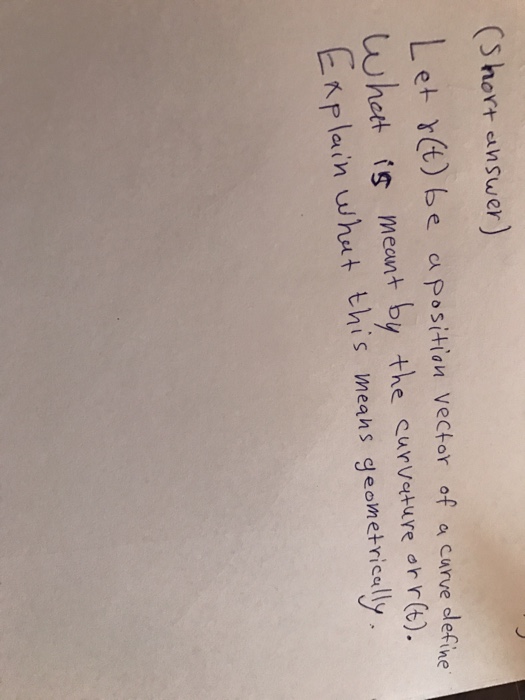 (Short answer)
Let r(t) be a position vector of a curve define
What is meant by the curvature or r(t).
Explain what this means geometrically.